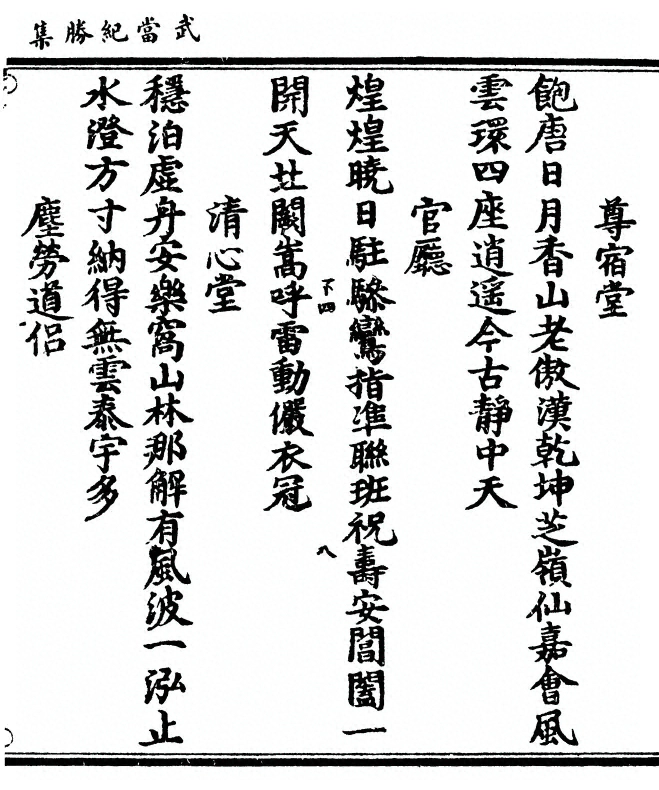 武當紀勝集
尊宿堂
飽唐日月香山老傲漢乾坤芝嶺仙嘉會風
雲環四座逍遥今古靜中天
官廳
煌煌曉日駐驂鸞指準聯班祝壽安閶闔一
下四
八
開天北闕嵩呼雷動儼衣冠
清心堂
穩泊虛舟安樂窩山林那解有風波一泓止
水澄方寸納得無雲泰宇多
塵勞道侣